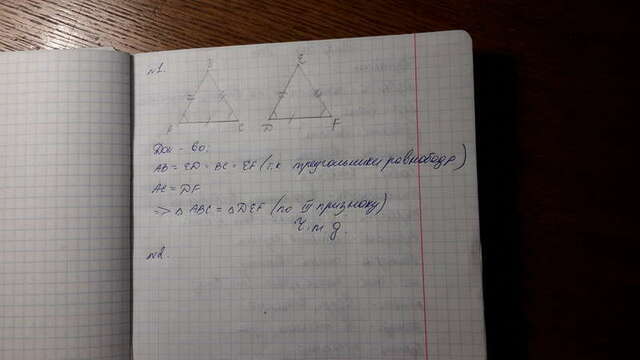 №1.
B E
A C D F
Док-во:
AB = ED = BC = EF (т.к треугольники равнобедр)
AC = DF
=> △ ABC = △ DEF (по III признаку)
Ч.т.д.
№2.